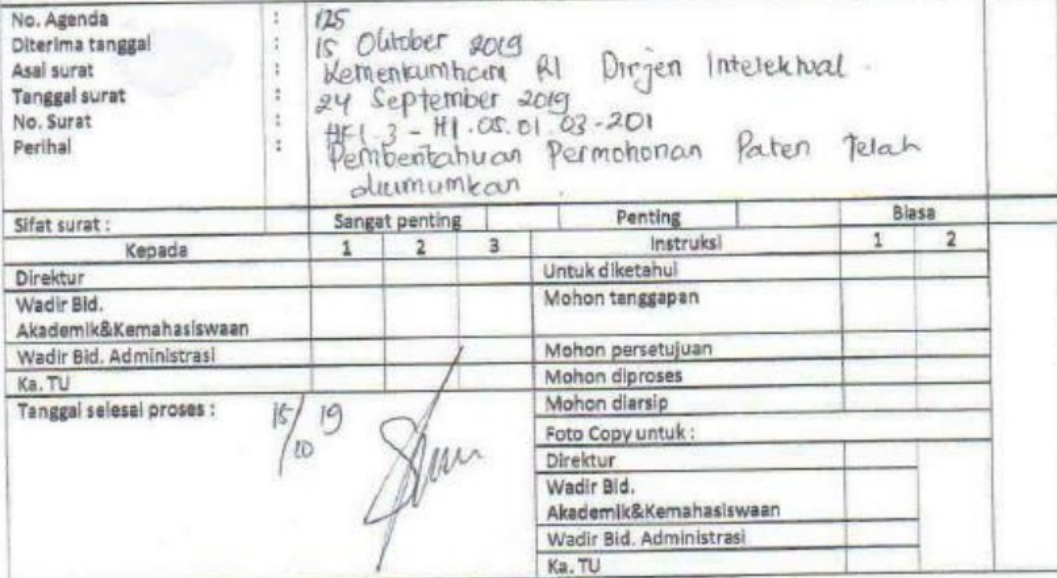 No. Agenda : 125
Diterima tanggal : 15 Oktober 2019
Asal surat : Kemenkumham RI Dirjen Intelektual.
Tanggal surat : 24 September 2019
No. Surat : HFI.3-HI.05.01.03-201
Perihal : Pemberitahuan Permohonan Paten Telah
diumumkan.
Sifat surat : Sangat penting Penting Biasa
Kepada 1 2 3 Instruksi 1 2
Direktur Untuk diketahui
Wadir Bid. Mohon tanggapan
Akademik&Kemahasiswaan
Wadir Bid. Administrasi Mohon persetujuan
Ka. TU Mohon diproses
Tanggal selesai proses : 15/10 19 Mohon diarsip
Foto Copy untuk :
Direktur
Wadir Bid.
Akademik&Kemahasiswaan
Wadir Bid. Administrasi
Ka. TU